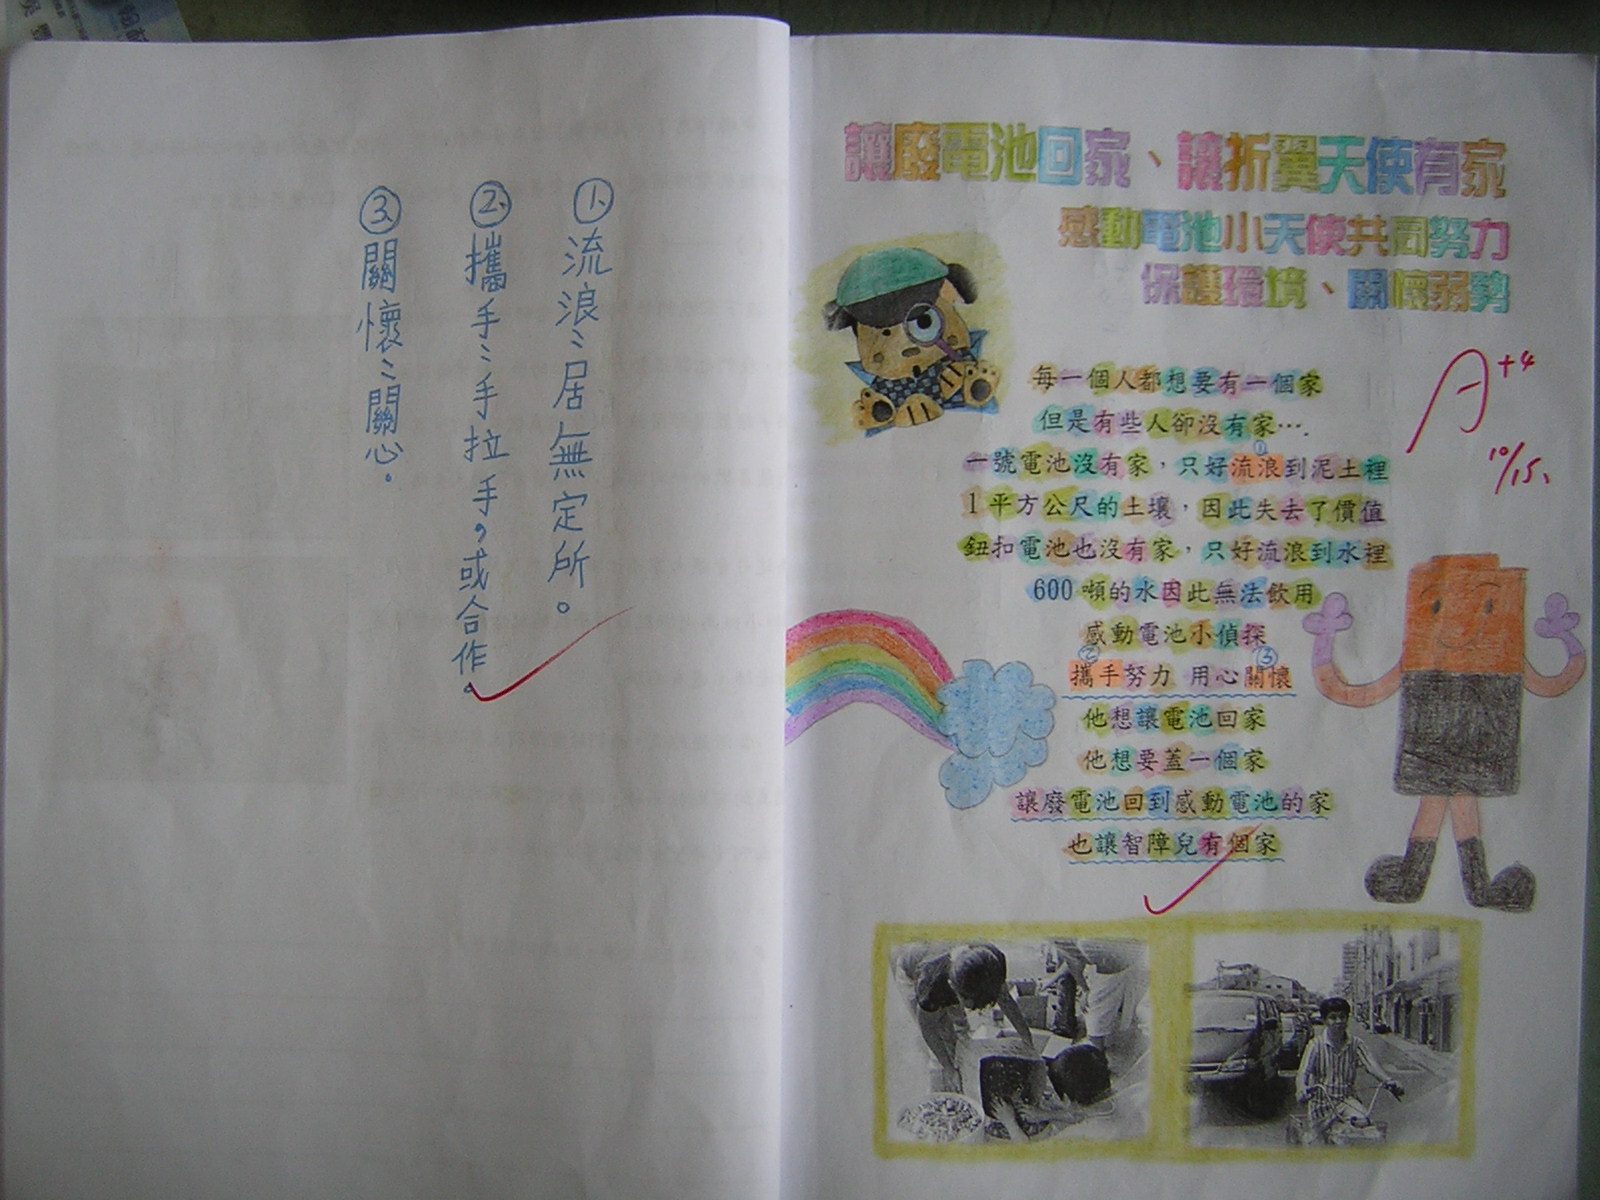 ①、流浪：居無定所。
②、攜手：手拉手，或合作。
③、關懷：關心。
讓廢電池回家、讓折翼天使有家
感動電池小天使共同努力
保護環境、關懷弱勢
A+4
10/15、
每一個人都想要有一個家
但是有些人卻沒有家….
①
一號電池沒有家，只好流浪到泥土裡
1平方公尺的土壤，因此失去了價值
鈕扣電池也沒有家，只好流浪到水裡
600 噸的水因此無法飲用
感動電池小偵探
② ③
攜手努力 用心關懷
他想讓電池回家
他想要蓋一個家
讓廢電池回到感動電池的家
也讓智障兒有個家